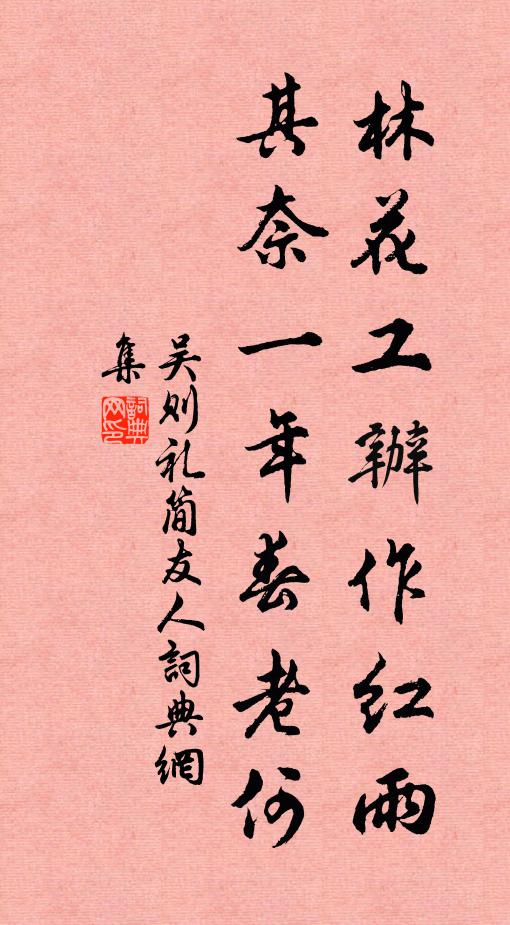 林花工辦作红雨
其奈一年春老何
吴则礼简友人詞典網
集
詞典
网印